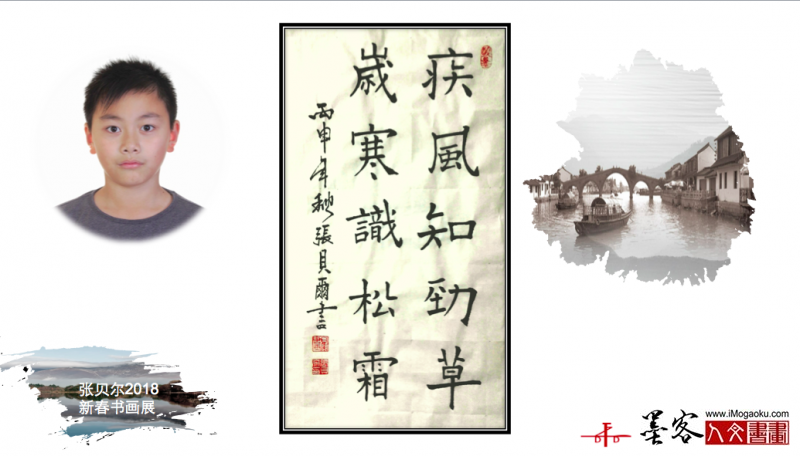 疾風知勁草
歲寒識松霜
丙申年秋張貝爾書
张贝尔2018
新春书画展
墨客
www.iMogaoku.com
人文書畫